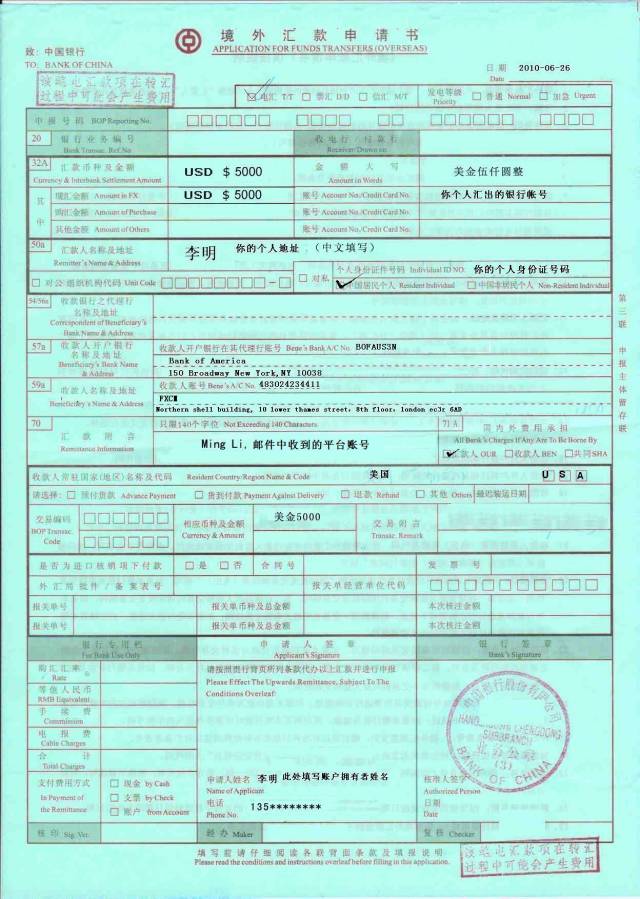 境外汇款申请书
APPLICATION FOR FUNDS TRANSFERS (OVERSEAS)
致: 中国银行
TO: BANK OF CHINA
日期 2010-06-26
Date
该笔电汇款项在转汇
过程中可能会产生费用
电汇 T/T 票汇 D/D 信汇 M/T 发电等级 Priority 普通 Normal 加急 Urgent
申报号码 BOP Reporting No.
20 银行业务编号
Bank Transac. Ref.No
收电行/付款行
Receiver/Drawn on
32A 汇款币种及金额
Currency & Interbank Settlement Amount
USD $ 5000
金额大写
Amount in Words
美金伍仟圆整
其中
现汇金额 Amount in FX USD $ 5000 账号 Account No./Credit Card No. 你个人汇出的银行帐号
购汇金额 Amount of Purchase 账号 Account No./Credit Card No.
其他金额 Amount of Others 账号 Account No./Credit Card No.
50a 汇款人名称及地址
Remitter's Name & Address
李明 你的个人地址.(中文填写)
对公 组织机构代码 Unit Code
对私
个人身份证件号码 Individual ID NO. 你的个人身份证号码
中国居民个人 Resident Individual 中国非居民个人 Non-Resident Individual
54/56a 收款银行之代理行
名称及地址
Correspondent of Beneficiary's
Bank Name & Address
57a 收款人开户银行
名称及地址
Beneficiary's Bank Name
& Address
收款人开户银行在其代理行账号 Bene's Bank A/C No. BOFAUS3N
Bank of America
150 Broadway New York,NY 10038
59a 收款人名称及地址
Beneficiary's Name & Address
收款人账号 Bene's A/C No. 483024234411
FXCM
Northern shell building, 10 lower thames street, 8th floor, london ec3r 6AD
70 汇款附言
Remittance Information
只限140个字位 Not Exceeding 140 Characters
Ming Li, 邮件中收到的平台账号
71A 国内外费用承担
All Bank's Charges If Any Are To Be Borne By
汇款人 OUR 收款人 BEN 共同 SHA
收款人常驻国家(地区)名称及代码 Resident Country/Region Name & Code 美国 U S A
请选择: 预付货款 Advance Payment 货到付款 Payment Against Delivery 退款 Refund 其他 Others 最迟装运日期
交易编码
BOP Transac.
Code
相应币种及金额
Currency & Amount
美金5000
交易附言
Transac. Remark
是否为进口核销项下付款 是 否 合同号 发票号
外汇局批件/备案表号 报关单经营单位代码
报关单号 报关单币种及总金额 本次核注金额
报关单号 报关单币种及总金额 本次核注金额
银行专用栏
For Bank Use Only
申请人签章
Applicant's Signature
银行签章
Bank's Signature
购汇汇率
Rate
等值人民币
RMB Equivalent
手续费
Commission
电报费
Cable Charges
合计
Total Charges
支付费用方式
In Payment of
the Remittance
现金 by Cash
支票 by Check
账户 from Account
请按照贵行背页所列条款代办以上汇款并进行申报
Please Effect The Upwards Remittance, Subject To The
Conditions Overleaf:
BANK OF CHINA
(3)
申请人姓名 李明 此处填写账户拥有者姓名
Name of Applicant
电话 135********
Phone No.
核准人签字
Authorized Person
日期
Date
核印 Sig. Ver. 经办 Maker 复核 Checker
填写前请仔细阅读各联背面条款及填报说明
Please read the conditions and instructions overleaf before filling in this application.
该笔电汇款项在转汇
过程中可能会产生费用
第三联 申报主体留存联